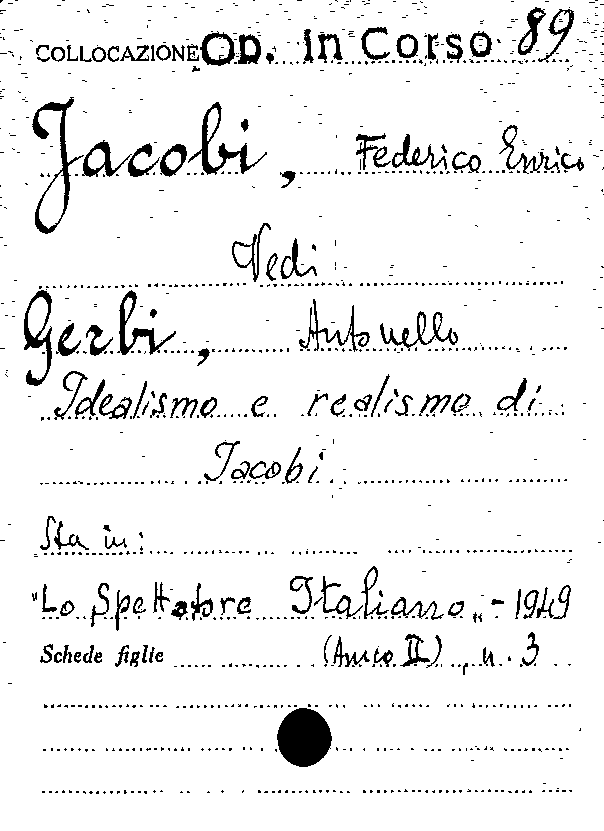 COLLOCAZIONE Op. in Corso 89
Jacobi, Federico Enrico
Vedi
Gerbi, Antonello
Idealismo e realismo di
Jacobi
Sta in:
"Lo Spettatore Italiano" - 1949
Schede figlie (Anno II), n. 3